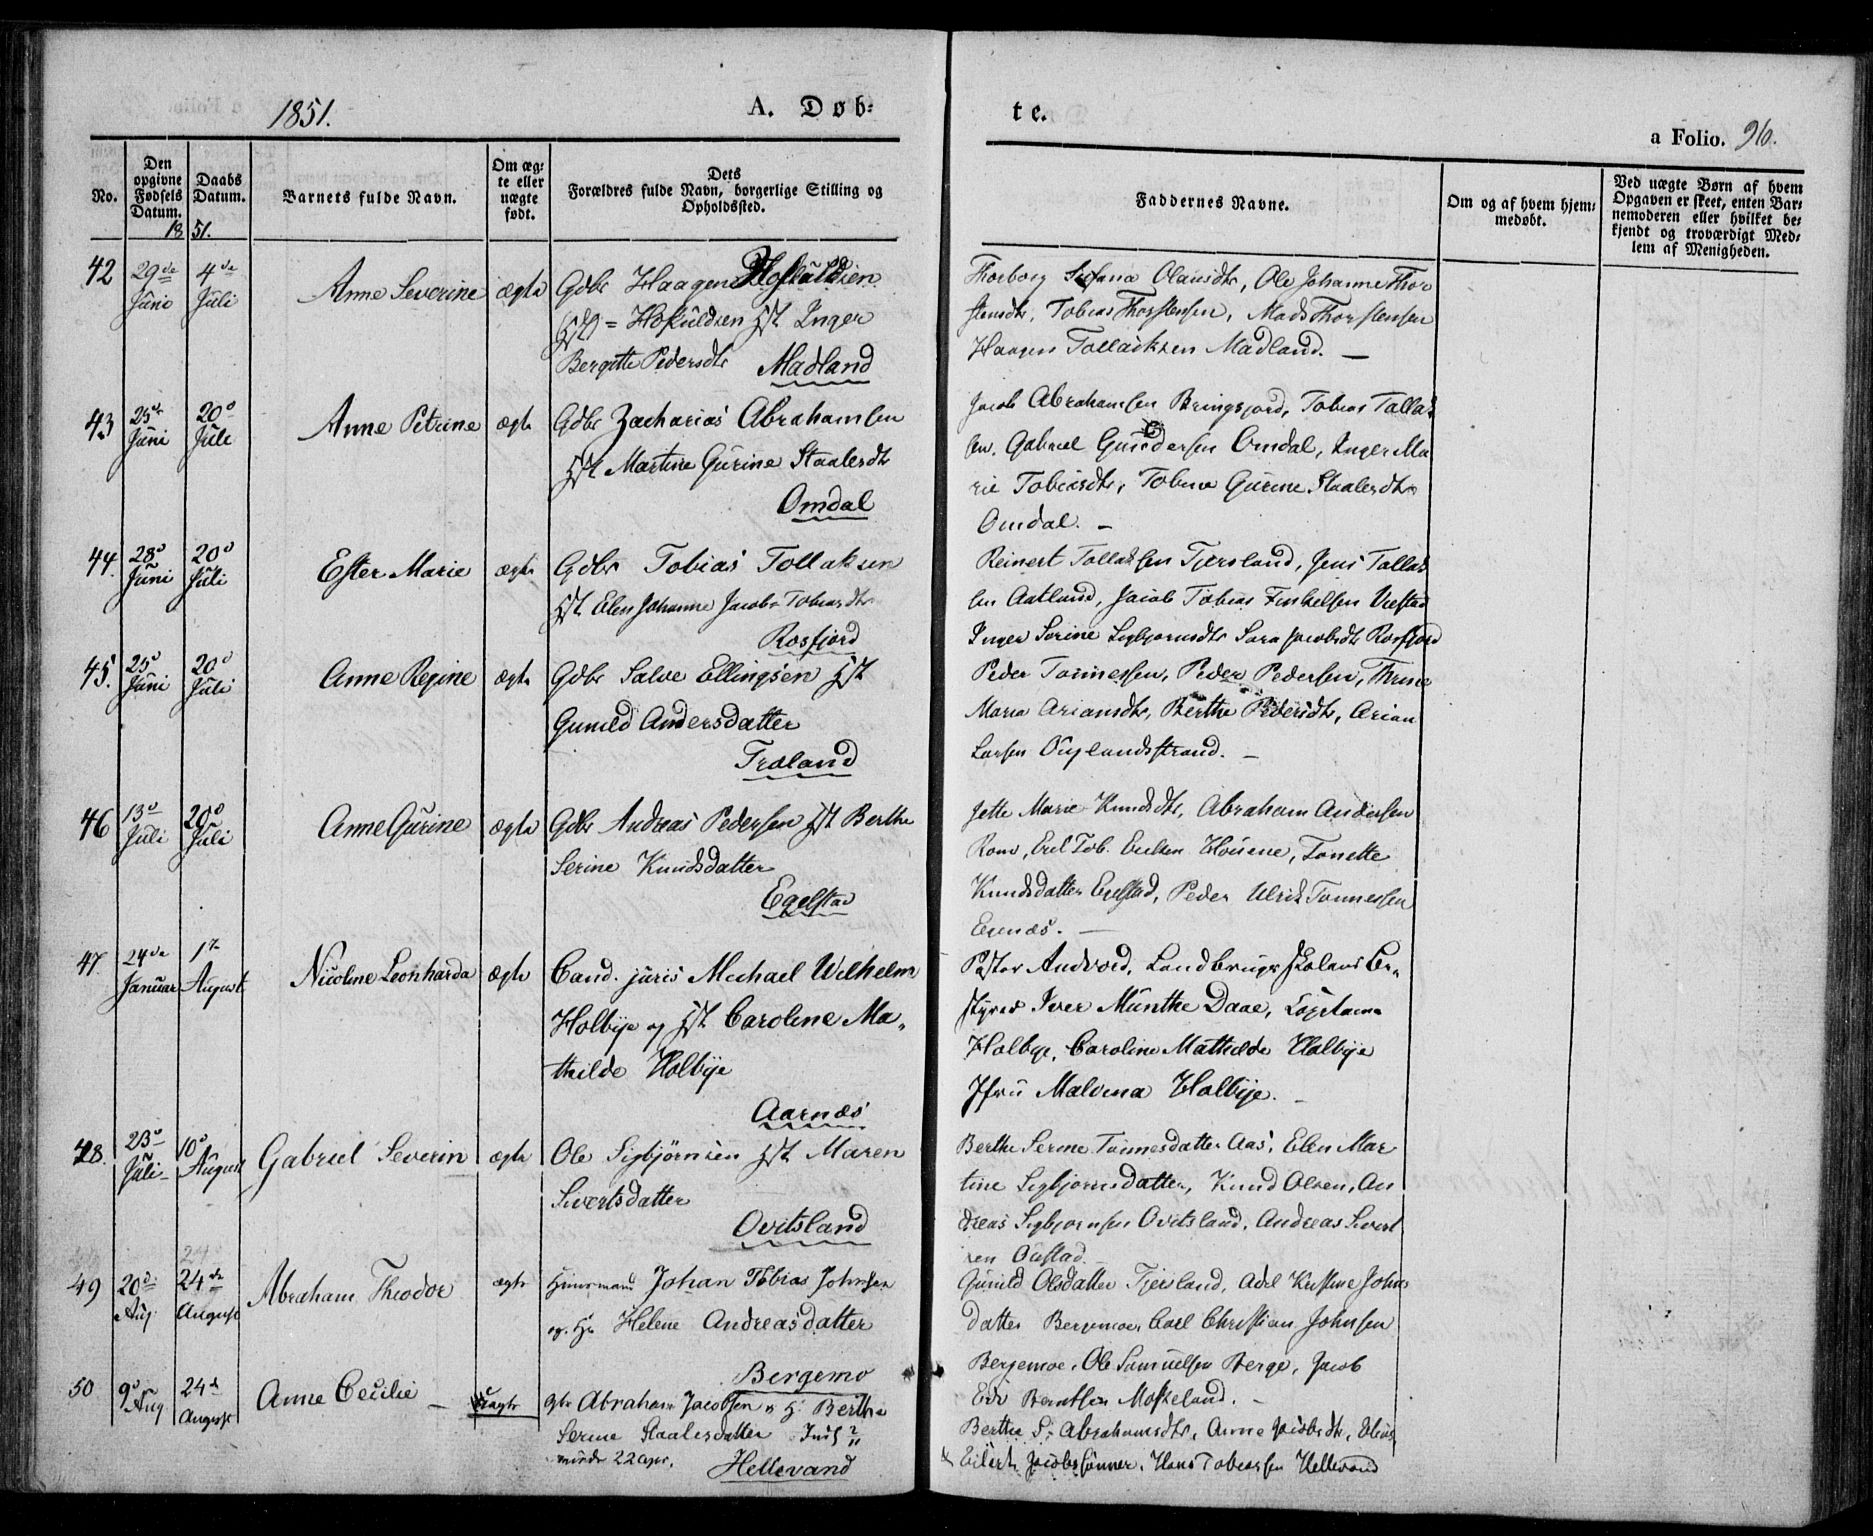 1851.
A. Døb-
te.
a Folio. 96.
No.
Den opgivne Fødsels Datum.
Daabs Datum.
18 51.
Barnets fulde Navn.
Om ægte eller uægte født.
Dets Forældres fulde Navn, borgerlige Stilling og Opholdssted.
Faddernes Navne.
Om og af hvem hjemmedøbt.
Ved uægte Børn af hvem Opgaven er skeet, enten Barnemoderen eller hvilket bekjendt og troværdigt Medlem af Menigheden.
42 29de Juni 4de Juli Anne Severine ægte Gdbr Haagen Hoskuldsen
Hoskuldsen Hst Inger
Bergitte Pedersdtr Madland
Thorborg Olausdtr, Ole Johanne Thor
stensdtr, Tobias Thorstensen, Mads Thorstensen
Haagen Tollaksen Madland. —
43 25de Juni 20d Juli Anne Petrine ægte Gdbr Zacharias Abrahamsen
Hst Martine Gurine Staalesdtr
Omdal
Jacob Abrahamsen Bringsjord, Tobias Tollak
sen, Gabriel Gundersen Omdal, Inger Ma
rie Tobiasdtr, Tobine Gurine Staalesdtr
Omdal. —
44 28d Juni 20d Juli Ester Marie ægte Gdbr Tobias Tollaksen
Hst Elen Johanne Jacobe Tobiasdtr
Rosfjord
Reinert Tollaksen Tjersland, Jens Tollak
sen Aatland, Jacob Tobias Vrestad
Inger Serine Sigbjørnsdtr Sara Jacobsdtr Rosfjord
45. 25d Juni 20d Juli Anne Regine ægte Gdbr Salve Ellingsen Hst
Gunild Andersdatter
Træland
Peder Tønnessen, Peder Pedersen, Thrine
Maria Ariansdtr, Berthe Pedersdtr, Arian
Larsen Øuglandsstrand. —
46 13d Juli 20d Juli Anne Gurine ægte Gdbr Andreas Pedersen Hst Berthe
Serine Knudsdatter
Egelstad
Jette Marie Knudsdtr, Abraham Andersen
Rom, Tob. Houene, Tonette
Knudsdatter Egelstad, Peder Ulrik Tønnessen
Eienæs. —
47. 24de Januar 1te August Nicoline Leonharda ægte Cand. juris Michael Wilhelm
Holbye og Hst Caroline Ma-
thilde Holbye
Aarnæs
Pastor Andvord, Landbrugsskolens Be-
styrer Iver Munthe Daae,
Holbye, Caroline Mathilde Holbye
Jfru Malvina Holbye. —
48. 23d Juli 10d August Gabriel Severin ægte Ole Sigbjørnsen Hst Maren
Sivertsdatter
Ovitsland
Berthe Serine Tønnesdatter Aas, Elen Mar
tine Sigbjørnsdatter, Knud Olsen, An
dreas Sigbjørnsen Ovitsland, Andreas Sivert
sen Øustad. —
49 20d Aug 24de August Abraham Theodor ægte Huusmand Johan Tobias Johnsen
og H. Helene Andreasdatter
Bergemo
Gunild Olsdatter Tjersland, Adel Kristine Johns
datter Bergemoe, Carl Christian Johnsen
Bergemoe, Ole Samuelsen Berge, Jacob
Edv Berntsen Moskeland. —
50 9d Aug 24d August Anne Cecilie — uægte gbr Abraham Jacobsen og H. Berthe
Serine Staalesdatter Inds
22 apr. Hellevand
Berthe S. Abrahamsdtr, Anne Jacobsdtr, Elias
Eilert Jacobssønner, Hans Tobiassen Hellevand